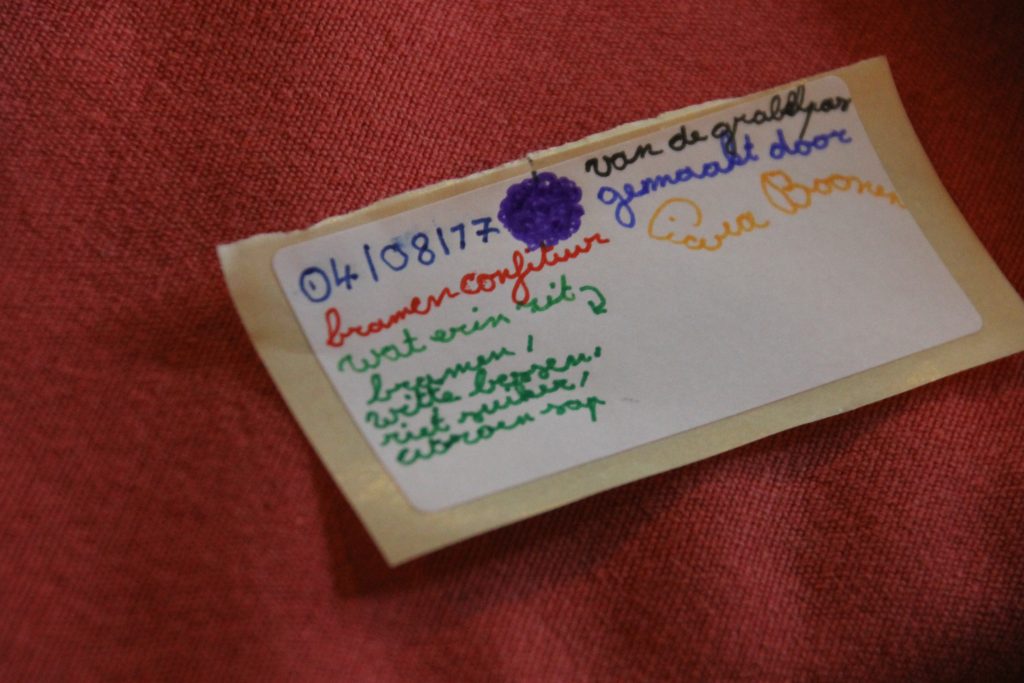 04/08/17
bramen confituur
wat erin zit
bramen,
witte bessen,
riet suiker,
citroen sap
van de
gemaakt door
Boonen